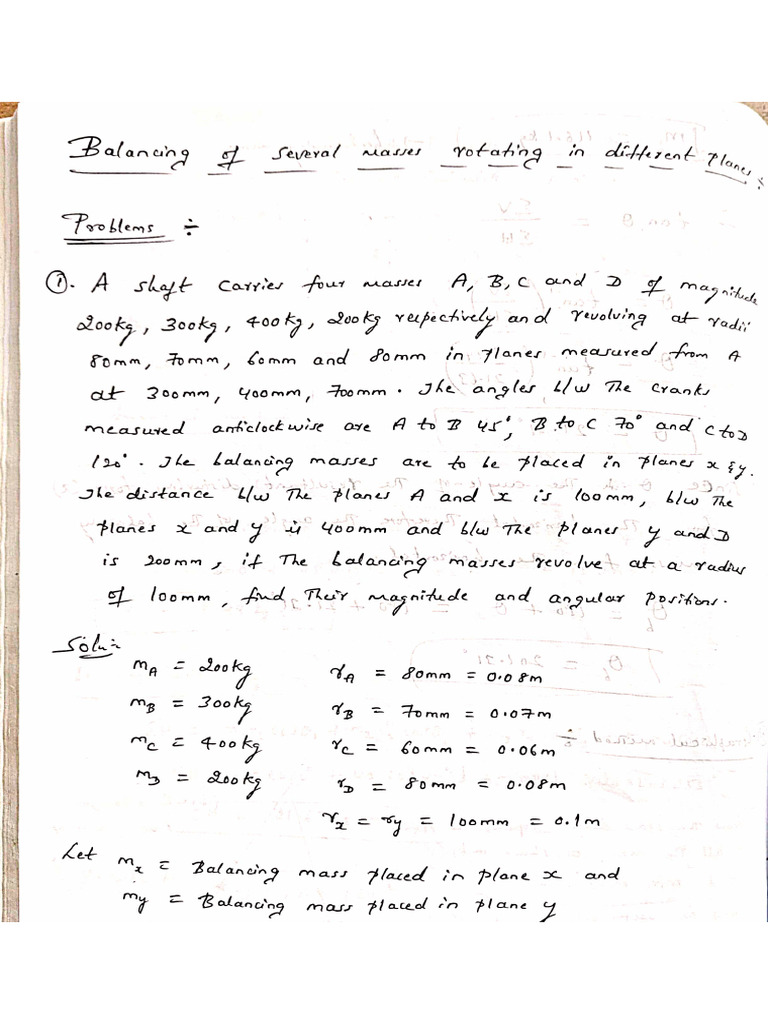 Balancing of several masses rotating in different planes ÷
Problems ÷
①. A shaft carries four masses A, B, C and D of magnitude
200kg, 300kg, 400kg, 200kg respectively and revolving at radii
80mm, 70mm, 60mm and 80mm in planes measured from A
at 300mm, 400mm, 700mm. The angles b/w The cranks
measured anticlockwise are A to B 45°, B to C 70° and C to D
120°. The balancing masses are to be placed in planes x & y.
The distance b/w The planes A and x is 100mm, b/w The
planes x and y is 400mm and b/w The planes y and D
is 200mm, if The balancing masses revolve at a radius
of 100mm, find Their magnitude and angular positions.
Solu:-
mA = 200kg rA = 80mm = 0.08m
mB = 300kg rB = 70mm = 0.07m
mC = 400kg rC = 60mm = 0.06m
mD = 200kg rD = 80mm = 0.08m
rx = ry = 100mm = 0.1m
Let mx = Balancing mass placed in plane x and
my = Balancing mass placed in plane y